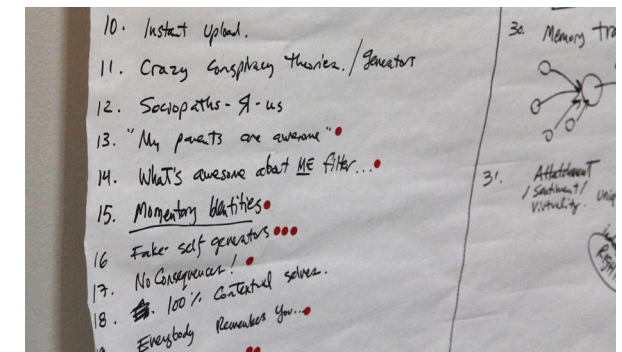 10. Instant Upload.
11. Crazy Conspiracy Theories. / generators
12. Sociopaths-Я-us
13. "My parents are awesome"
14. What's awesome about ME filter...
15. Momentary Identities
16 Faker self generators
17. No Consequences!
18. 100% Contextual selves.
Everybody Remembers You...
30. Memory tra
31. Attachment
/Sentiment/
Virtuality.